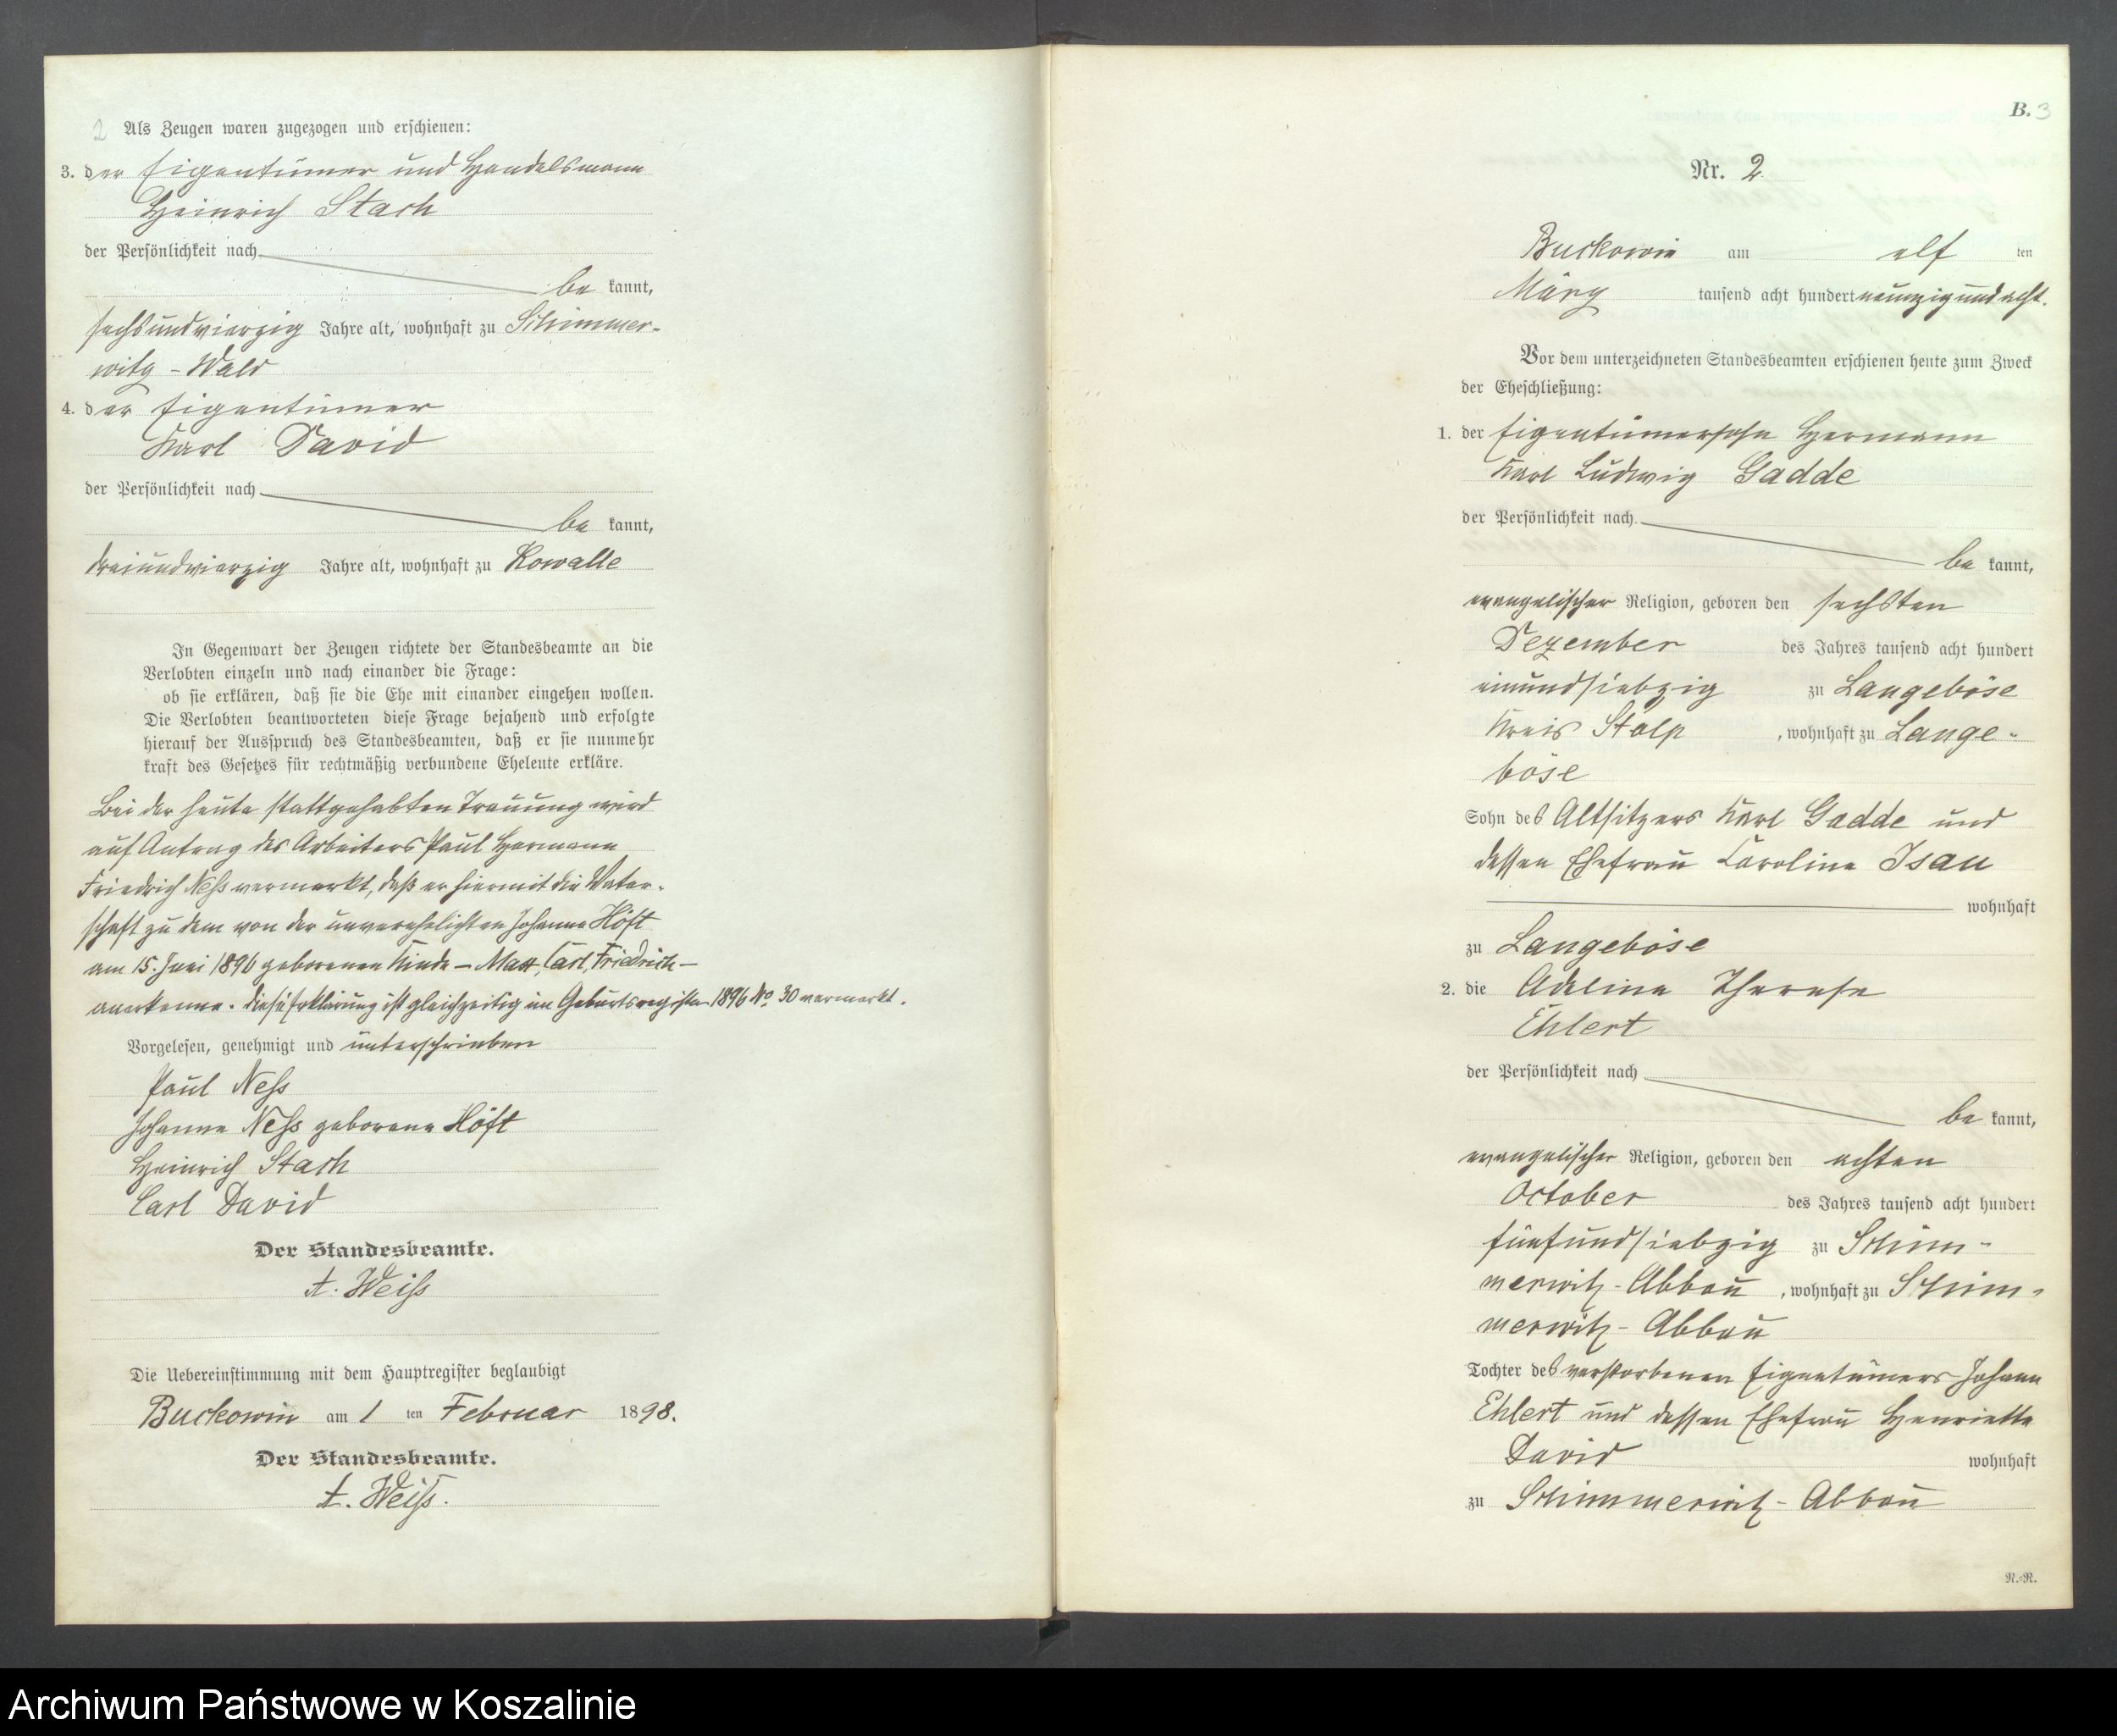 2 Als Zeugen waren zugezogen und erschienen:
3. der Eigentümer und Handelsmann
Heinrich Stach
der Persönlichkeit nach
be kannt,
sechsundvierzig Jahre alt, wohnhaft zu Schimmer-
witz - Wald
4. der Eigentümer
Karl David
der Persönlichkeit nach
be kannt,
dreiundvierzig Jahre alt, wohnhaft zu Kowalle
In Gegenwart der Zeugen richtete der Standesbeamte an die
Verlobten einzeln und nach einander die Frage:
ob sie erklären, daß sie die Ehe mit einander eingehen wollen.
Die Verlobten beantworteten diese Frage bejahend und erfolgte
hierauf der Ausspruch des Standesbeamten, daß er sie nunmehr
kraft des Gesetzes für rechtmäßig verbundene Eheleute erkläre.
Bei der heute stattgehabten Trauung wird
auf Antrag des Arbeiters Paul Hermann
Friedrich Neß vermerkt, daß er hiermit die Vater-
schaft zu dem von der unverehelichten Johanne Höft
am 15. Juni 1896 geborenen Kinde - Max, Carl, Friedrich -
anerkenne. Diese Erklärung ist gleichzeitig im Geburtsregister 1896 No 30 vermerkt.
Vorgelesen, genehmigt und unterschrieben
Paul Neß
Johanne Neß geborene Höft
Heinrich Stach
Carl David
Der Standesbeamte.
A. Weiß
Die Uebereinstimmung mit dem Hauptregister beglaubigt
Buckowin am 1 ten Februar 1898.
Der Standesbeamte.
A. Weiß.
B. 3
Nr. 2
Buckowin am elf ten
März tausend acht hundert neunzig und acht.
Vor dem unterzeichneten Standesbeamten erschienen heute zum Zweck
der Eheschließung:
1. der Eigentümersohn Hermann
Karl Ludwig Gadde
der Persönlichkeit nach
be kannt,
evangelischer Religion, geboren den sechsten
Dezember des Jahres tausend acht hundert
einundsiebzig zu Langeböse
Kreis Stolp, wohnhaft zu Lange-
böse
Sohn des Altsitzers Karl Gadde und
dessen Ehefrau Caroline Isau
wohnhaft
zu Langeböse
2. die Adeline Therese
Ehlert
der Persönlichkeit nach
be kannt,
evangelischer Religion, geboren den achten
October des Jahres tausend acht hundert
fünfundsiebzig zu Schim-
merwitz - Abbau, wohnhaft zu Schim-
merwitz - Abbau
Tochter des verstorbenen Eigentümers Johann
Ehlert und dessen Ehefrau Henriette
David wohnhaft
zu Schimmerwitz - Abbau
N.-N.
Archiwum Państwowe w Koszalinie